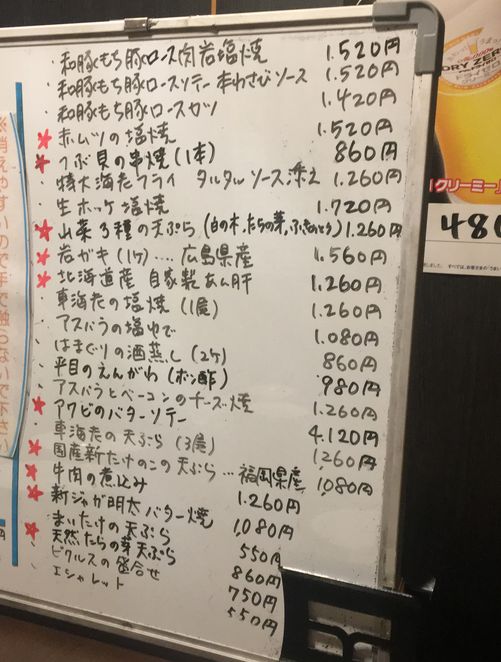 ・和豚もち豚ロース肉岩塩焼 1.520円
・和豚もち豚ロースソテー本わさびソース 1.520円
・和豚もち豚ロースカツ 1.420円
★赤ムツの塩焼 1.520円
★つぶ貝の串焼(1本) 860円
・特大海老フライ タルタルソース添え 1.260円
・生ホッケ塩焼 1.720円
★山菜3種の天ぷら(白の木、たらの芽、ふきのとう) 1.260円
★岩ガキ(1ケ)....広島県産 1.560円
★北海道産 自家製あん肝 1.260円
・車海老の塩焼(1尾) 1.260円
・アスパラの塩ゆで 1.080円
・はまぐりの酒蒸し(2ケ) 860円
・平目のえんがわ(ポン酢) 980円
・アスパラとベーコンのチーズ焼 1.260円
★アワビのバターソテー 4.120円
・車海老の天ぷら(3尾) 1260円
★国産新たけのこの天ぷら...福岡県産 1,080円
★牛肉の煮込み 1.260円
★新ジャガ明太バター焼 1,080円
・まいたけの天ぷら 550円
★天然たらの芽天ぷら 860円
・ピクルスの盛合せ 750円
・エシャレット 550円
※消えやすいので手で触らないで下さい
DRY ZERO
クリーミー
480
円